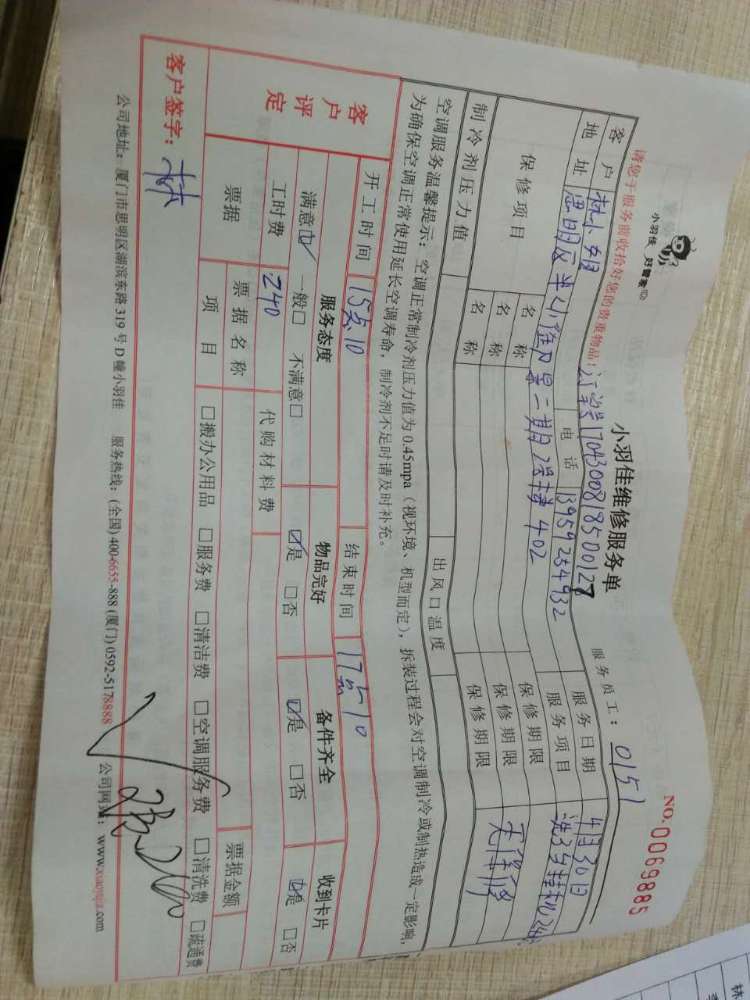 小羽佳 好管家
小羽佳维修服务单
NO. 0069885
请您于服务前收拾好您的贵重物品! 订单号1704300818500127
服务员工: 0151
客户 林小姐 电话 13959254932 服务日期 4月30日
地址 二期2号楼402 服务项目 洗3台挂机
保修项目 名称 保修期限
名称 保修期限
名称 保修期限
制冷剂压力值 出风口温度
空调服务温馨提示: 空调正常制冷剂压力值为0.45mpa (视环境、机型而定), 拆装过程会对空调制冷或制热造成一定影响,
为确保空调正常使用延长空调寿命, 制冷剂不足时请及时补充。
客户评定
开工时间 15点10 结束时间 17点10
服务态度 物品完好 备件齐全 收到卡片
满意☑ 一般□ 不满意□ ☑是 □否 ☑是 □否 ☑是 □否
工时费 240 代购材料费
票据 票据名称 票据金额
项目 □搬办公用品 □服务费 □清洁费 □空调服务费 □清洗费 □疏通费
客户签字: 林
公司地址: 厦门市思明区湖滨东路319号D幢小羽佳 服务热线: (全国) 400-6655-888 (厦门) 0592-5178888 公司网站: www.xiaoyujia.com